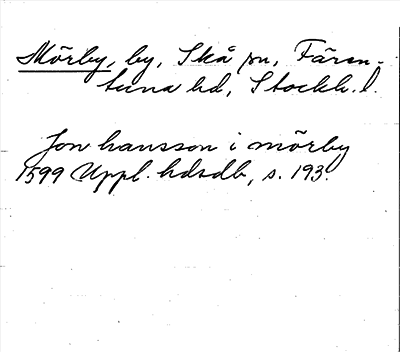 Mörby, by, Skå sn, Fären-
tuna hd, Stockh. l.
Jon hansson i mörby
1599 Uppl. hdsdb, s. 193.